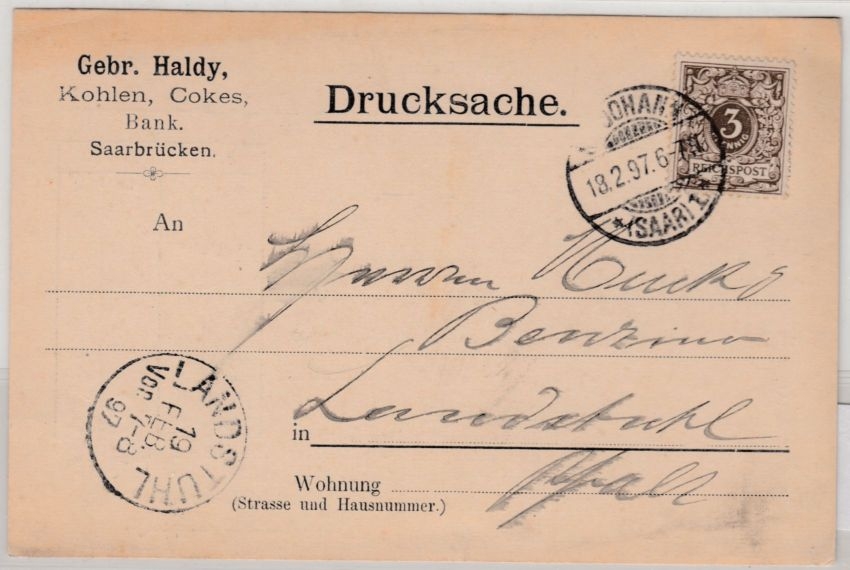 Gebr. Haldy,
Kohlen, Cokes,
Bank.
Saarbrücken.
Drucksache.
JOHANN
18.2.97. 6-7N
*(SAAR) 1*
3
PFENNIG
REICHSPOST
An
Herren
Benzino
in Landstuhl
Wohnung Pfalz
(Strasse und Hausnummer.)
LANDSTUHL
19
FEB.
Vor. 7-8
97